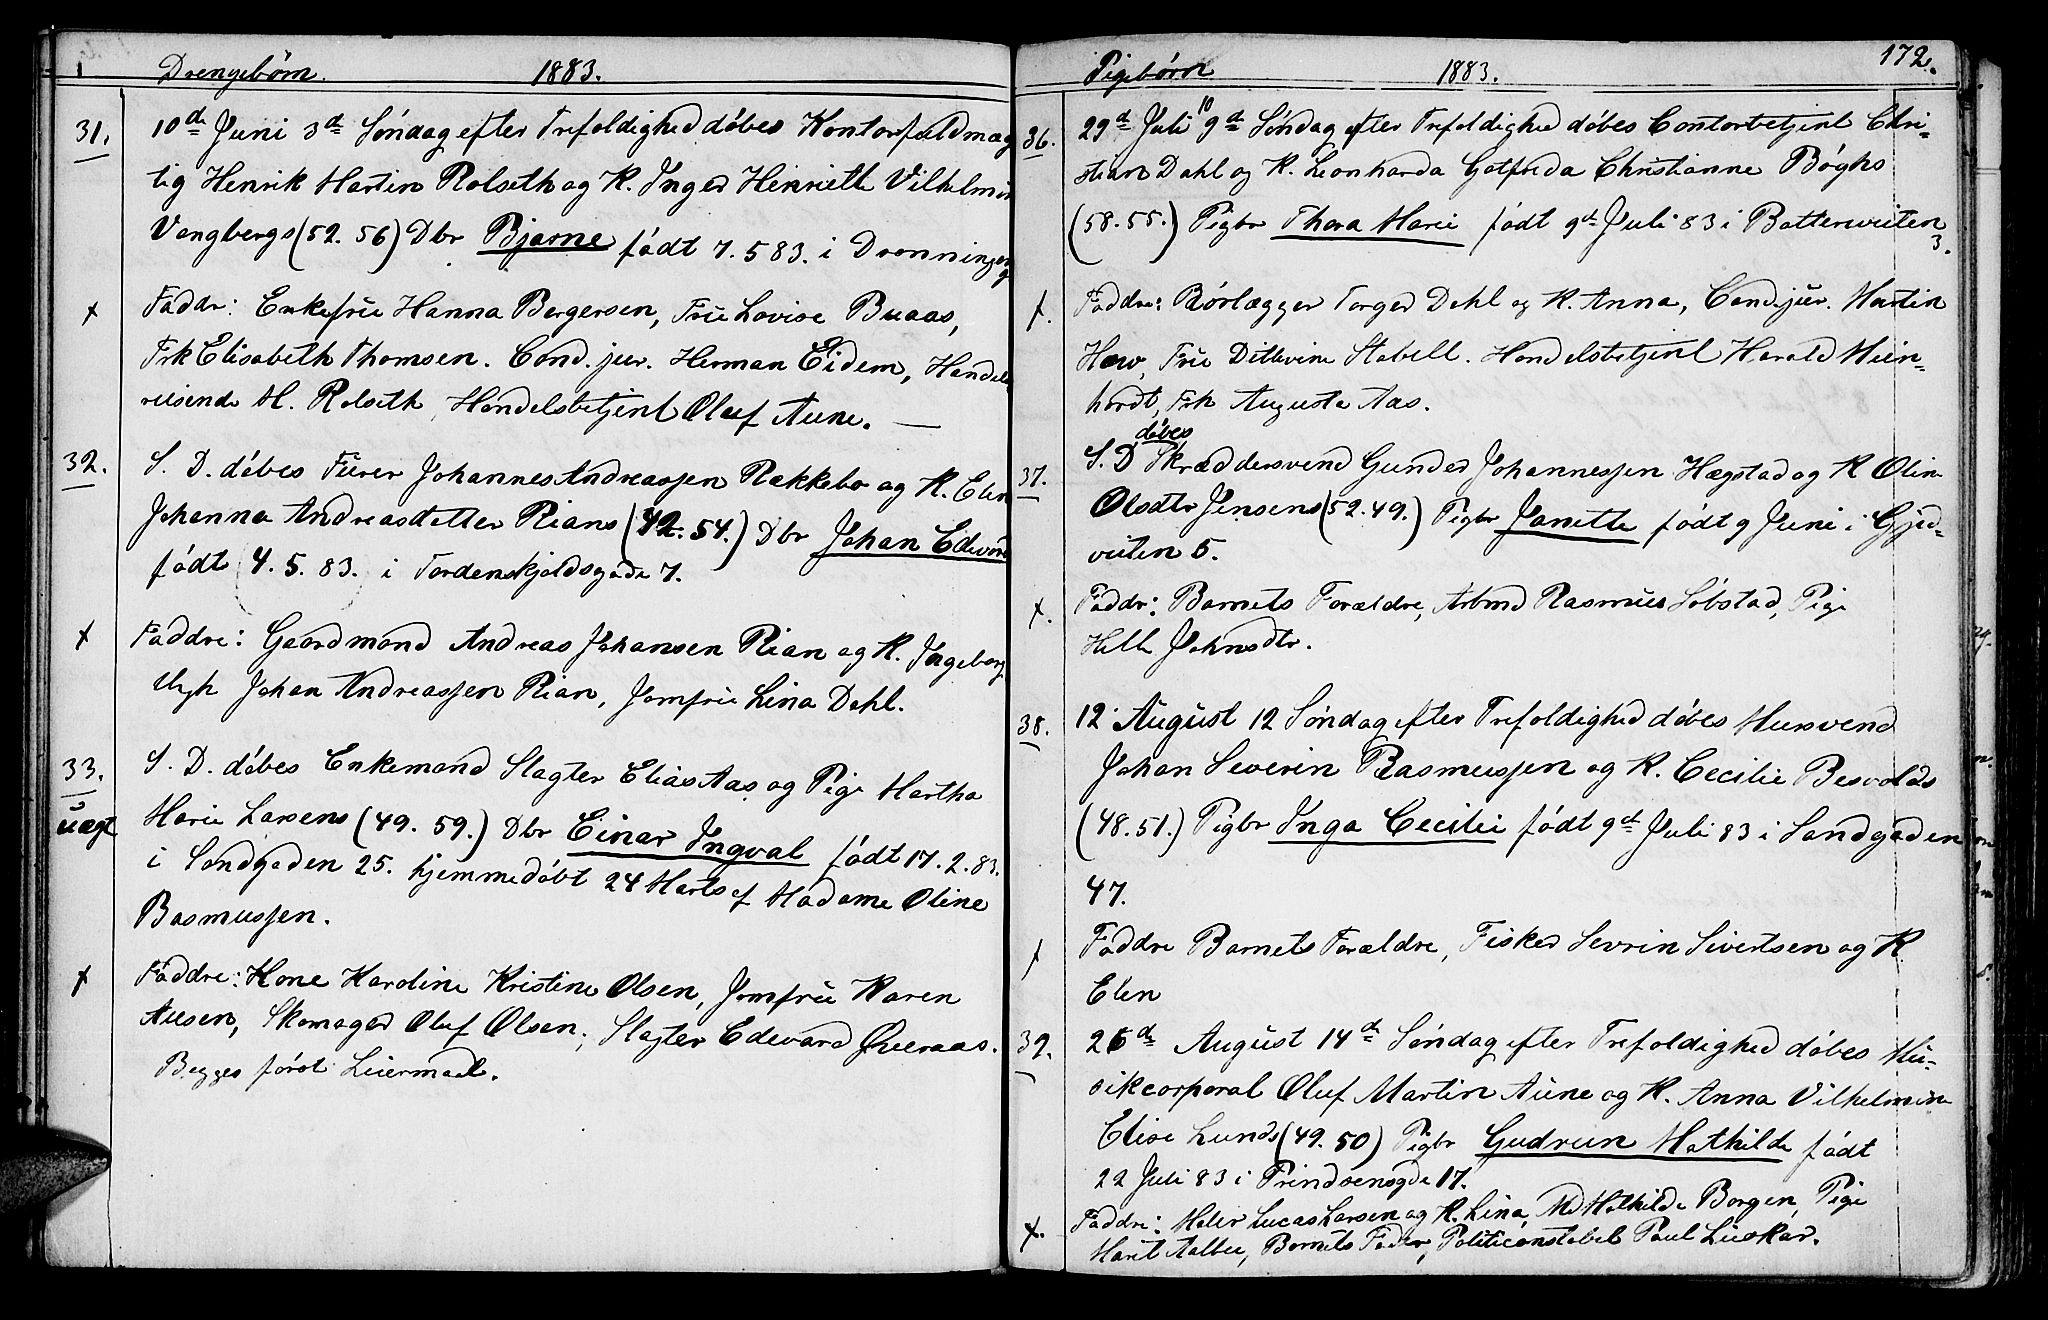 Drengebørn. 1883.
31. 10de Juni 3de Søndag efter Trefoldighed døbes Kontorfuldmæg
tig Henrik Martin Rolseth og K. Inger Henriette Vilhelmin
Vangbergs (52. 56) Dbr Bjarne født 7. 5 83. i Dronningens
g
+ Faddr: Enkefrü Hanna Bergersen, Frü Lovise Buaas,
Frk Elisabeth Thomsen. Cand. jur. Herman Eidem, Handels
reisende M. Rolseth, Handelsbetjent Oluf Aune. —
32. S. D. døbes Fürer Johannes Andreassen Rækkebo og K. Elen
Johanna Andreasdatter Rians (42. 54.) Dbr Johan Edvard
født 4. 5. 83. i Tordenskjoldsgade 7.
+ Faddre: Gaardmand Andreas Johansen Rian og K. Ingeborg
Ungk Johan Andreassen Rian, Jomfrü Lina Dahl.
33. S. D. døbes Enkemand Slagter Elias Aas og Pige Martha
üægt Marie Larsens (49. 59.) Dbr Einar Ingval født 17. 2. 83.
i Sandgaden 25. hjemmedøbt 24 Marts af Madame Oline
Rasmussen.
+ Faddre: Kone Karoline Kristine Olsen, Jomfrü Karen
Ausen, Skomager Oluf Olsen, Slagter Edevard Øveraas.
Begges först Leiermaal.
Pigebørn 1883. 172.
36. 29de Juli 10 9de Søndag efter Trefoldighed døbes Contorbetjent Chri-
stian Dahl og K. Leonharda Gotfreda Christianne Bøghs
(58. 55.) Pigbr Thora Marie født 9de Juli 83 i Batterveiten
3.
+. Faddre: Rörlægger Torger Dahl og K. Anna, Cand. jur. Martin
How, Frü Ditlevine Stabell. Handelsbetjent Harald Mein-
hardt, Frk Augusta Aas.
døbes
37. S. D Skræddersvend Gunder Johannessen Hægstad og K Olin
Olsdtr Jensens (52. 49.) Pigbr Janette født 9 Juni i Gjed-
veiten 5.
+. Faddr: Barnets Forældre, Arbmd Rasmus Søbstad, Pige
Hell Johnsdtr.
38. 12. August 12 Søndag efter Trefoldighed døbes Mursvend
Johan Severin Rasmussen og K. Cecilie Besvolds
(48. 51.) Pigbr Inga Cecilie født 9de Juli 83 i Sandgaden
47.
+ Faddre Barnets Forældre, Fisker Sevrin Sivertsen og K
Elen
39. 26de August 14de Søndag efter Trefoldighed døbes Mu-
sikcorporal Oluf Martin Aune og K. Anna Vilhelmine
Elise Lunds (49. 50) Pigbr Gudrun Mathilde født
22 Juli 83 i Prindsensgde 17.
+. Faddre: Maler Lucas Larsen og K. Lina, Md Mathilde Borgen, Pige
Marit Aalbu, Barnets Fader, Politiconstabel Paul Luskar.